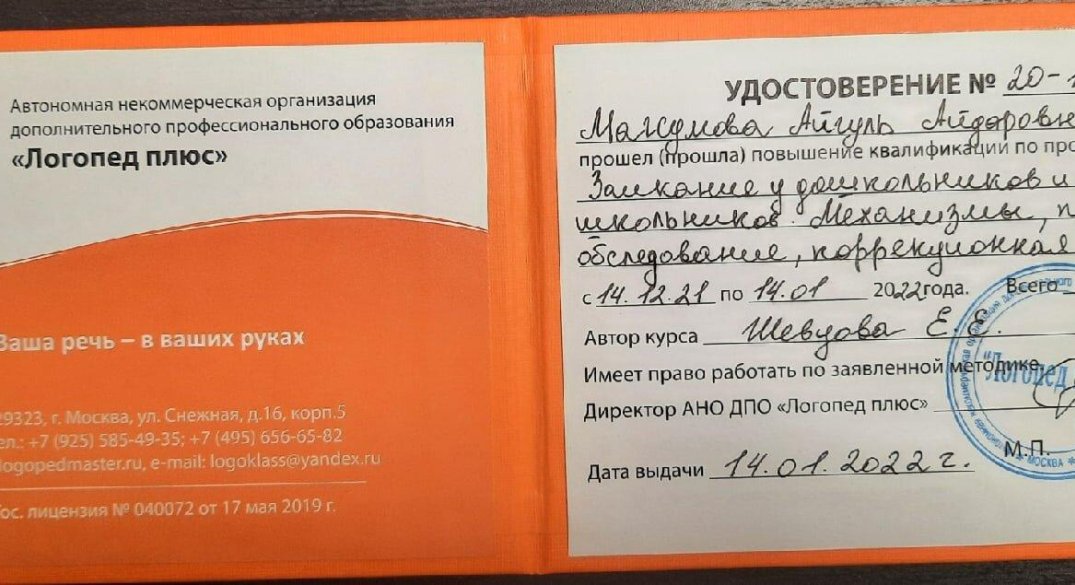 Автономная некоммерческая организация
дополнительного профессионального образования
«Логопед плюс»
Ваша речь – в ваших руках
29323, г. Москва, ул. Снежная, д.16, корп.5
ел.: +7 (925) 585-49-35; +7 (495) 656-65-82
logopedmaster.ru, e-mail: logoklass@yandex.ru
Гос. лицензия № 040072 от 17 мая 2019 г.
УДОСТОВЕРЕНИЕ № 20-1
Айгуль Айдаровн
прошел (прошла) повышение квалификации по про
Заикание у дошкольников и
школьников. Механизмы, п
обследование, коррекционная
с 14.12.21 по 14.01 2022года. Всего
Автор курса Шевцова Е. Е.
Имеет право работать по заявленной методике.
Директор АНО ДПО «Логопед плюс»
М.П.
Дата выдачи 14.01.2022 г.
"Логопед
МОСКВА